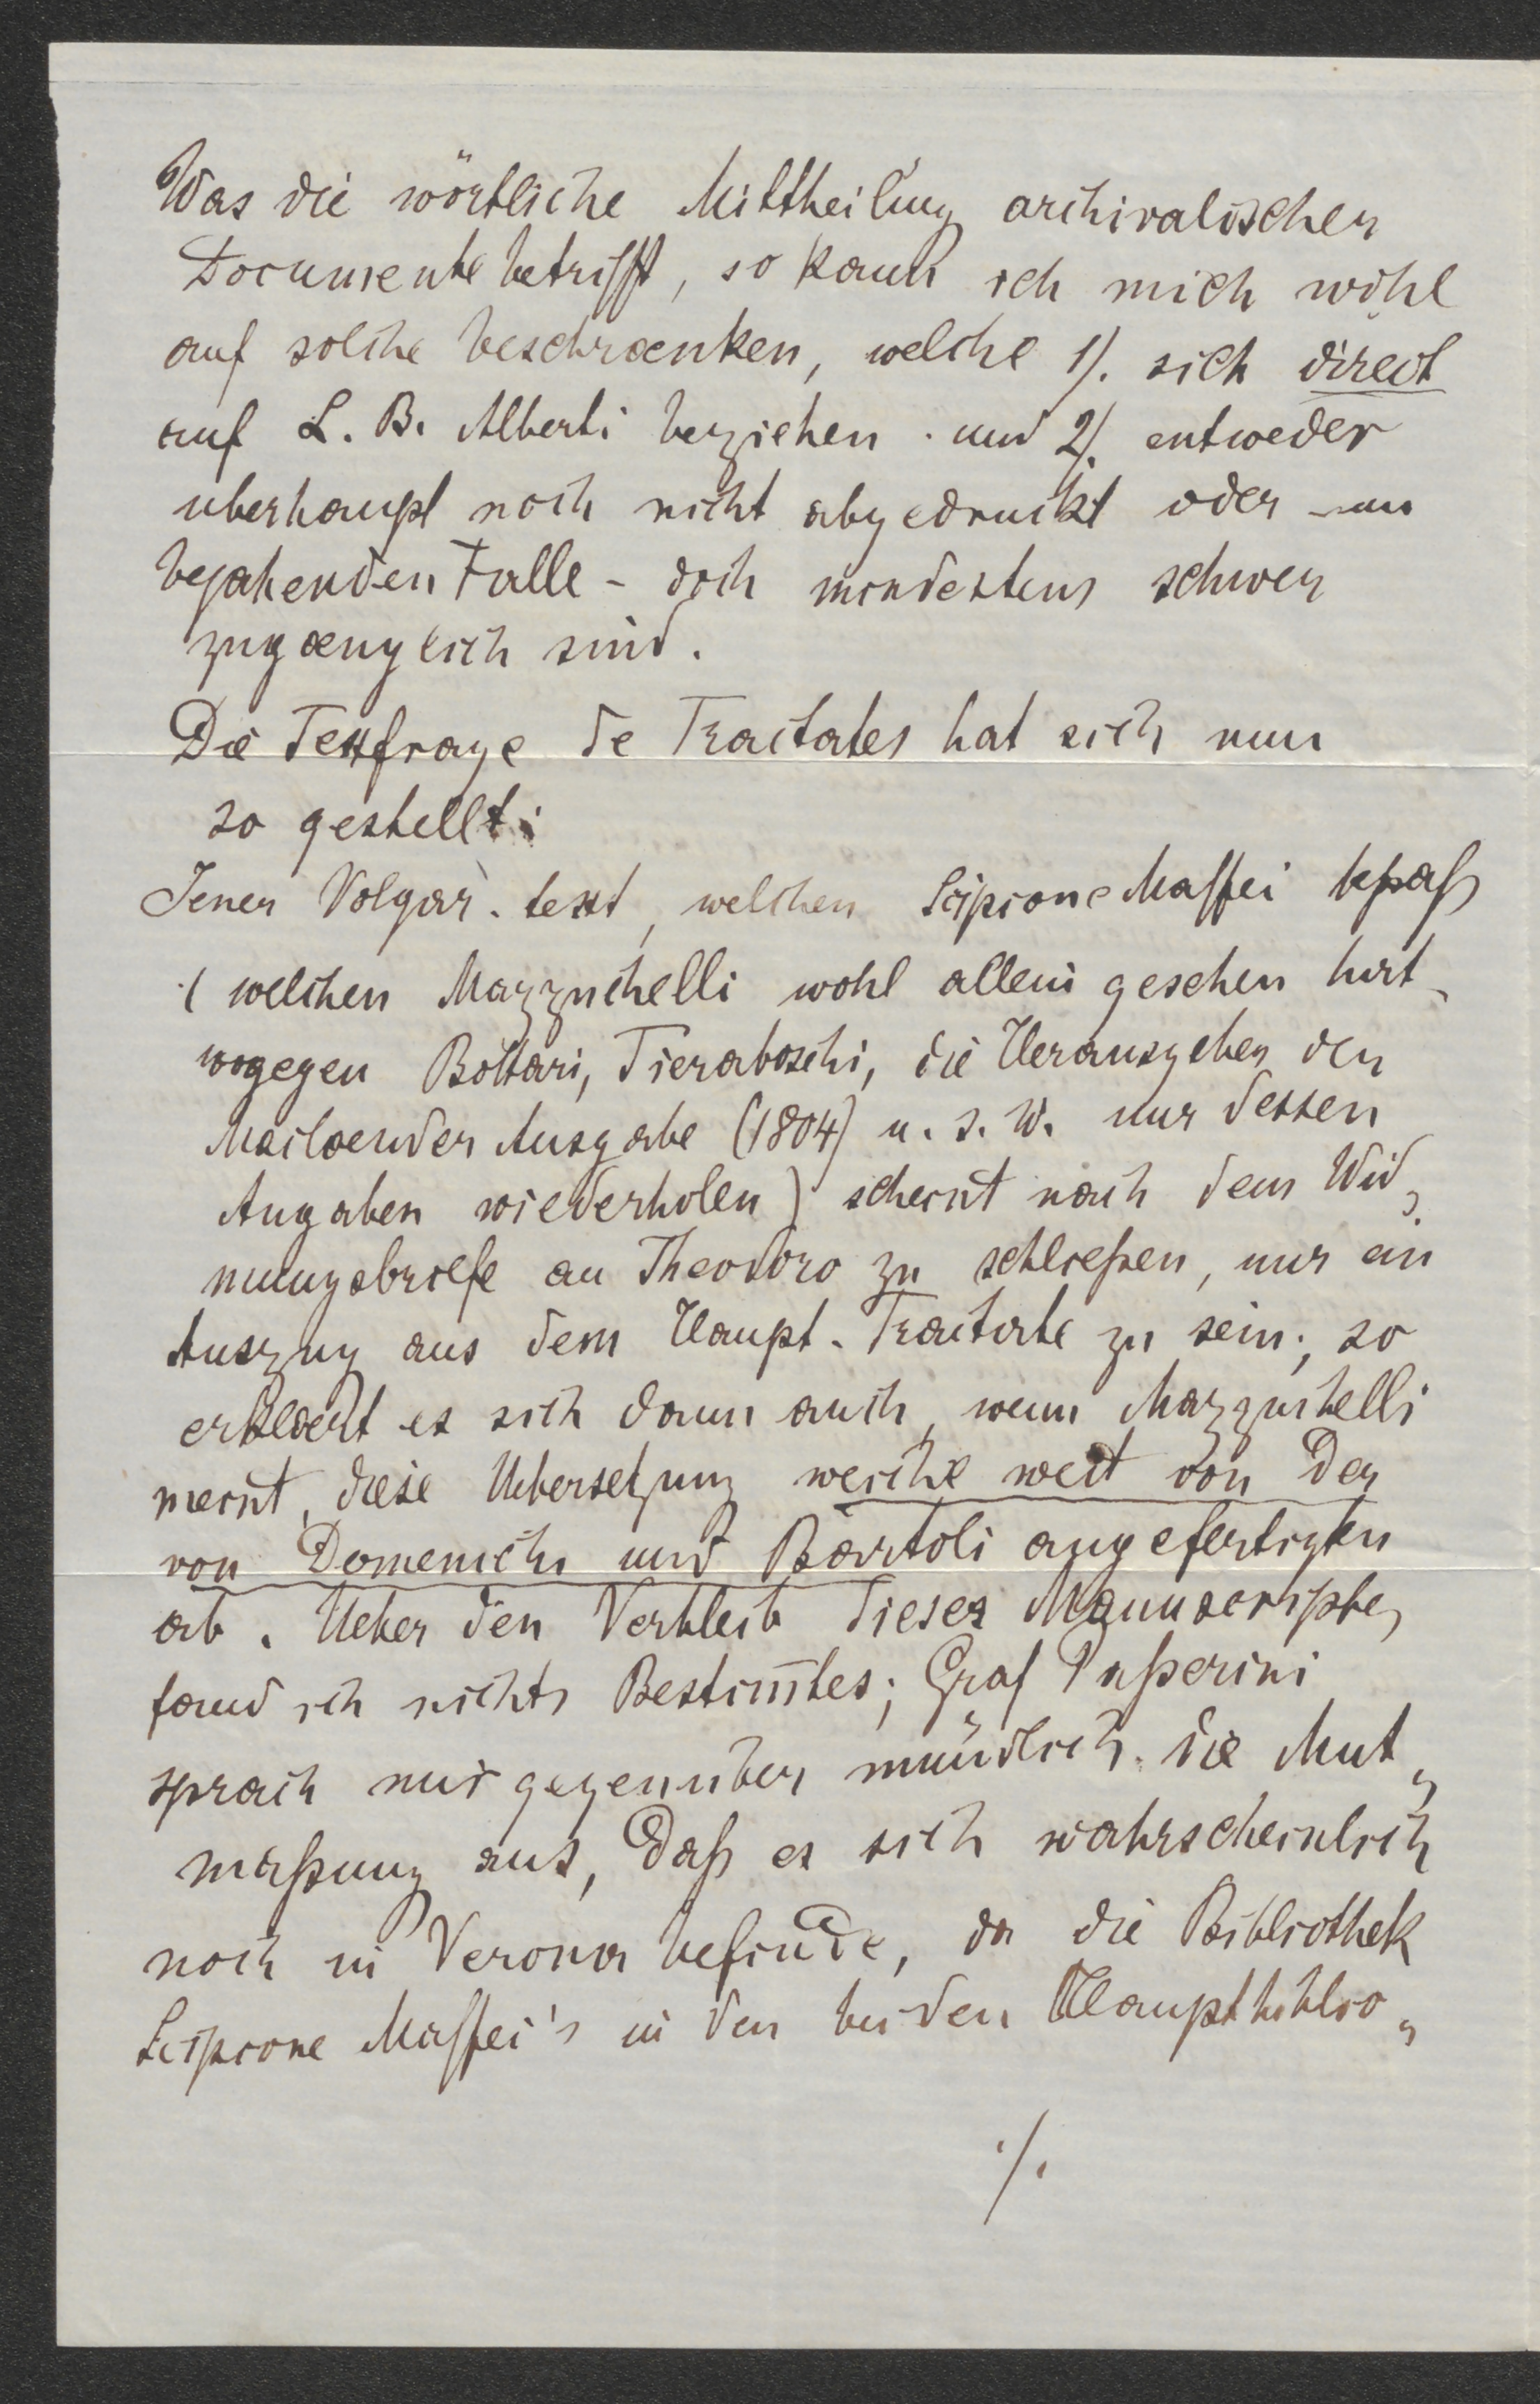 Was die wörtliche Mittheilung archivalischer
Documente betrifft, so kann ich mich wohl
auf solche beschraenken, welche 1). sich direct
auf L. B. Alberti beziehen . und 2). entweder
uberhaupt noch nicht abgedruckt oder – im
bejahenden Falle – doch mindestens schwer
zugaenglich sind.
Die Textfrage de Tractates hat sich nun
so gestellt:
Jener Volgar-text, welchen Scipione Maffei besaß
( welchen Mazzuchelli wohl allein gesehen hat –
wogegen Bottari, Tieraboschi, die Herausgeber der
Mailaender Ausgabe (1804) u. s. W. nur dessen
Angaben wiederholen) scheint nach dem Wid„
mungsbriefe an Theodoro zu schließen, nur ein
Auszug aus dem Haupt-Tractate zu sein; so
erklaert es sich dann auch, wenn Mazzuchelli
meint, diese Uebersetzung weiche weit von der
von Domenichi und Bartoli angefertigten
ab. Ueber den Verbleib dieses Manuscriptes
fand ich nichts Bestim̅tes; Graf Paßerini
sprach mir gegenuber mündlich die Mut„
maßung aus, daß es sich wahrscheinlich
noch in Verona befinde, da die Bibliothek
Scipione Maffei's in den beiden Hauptbiblio„
./.